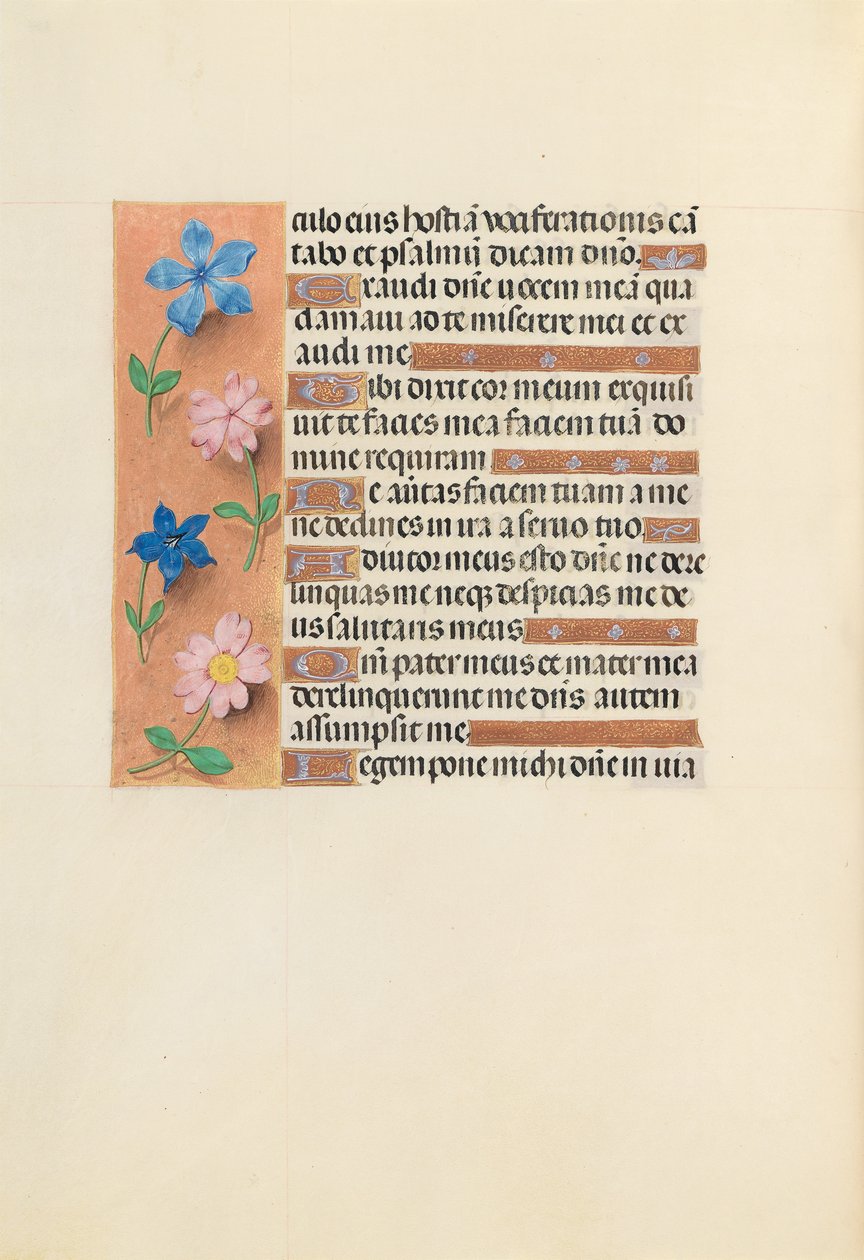 culo eius hostiā vociferationis cā
tabo et psalmū dicam dn̄o.
Exaudi dn̄e uocem meā qua
clamaui ad te miserere mei et ex
audi me
Tibi dixit cor meum exquisi
uit te facies mea faciem tuā do
mine requiram
Ne au̅tas faciem tuam a me
ne declines in ira a seruo tuo.
Adiutor meus esto dn̄e ne dere
linquas me neqꝫ despicias me de
us salutaris meus
Qm̄ pater meus et mater mea
derelinquerunt me dn̄s autem
assumpsit me
Legem pone michi dn̄e in uia